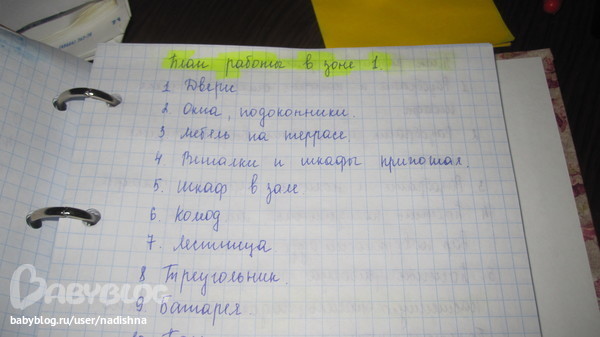 План работы в зоне 1
1 Двери
2. Окна, подоконники.
3 мебель на террасе.
4 Вешалки и шкафы прихожая.
5. шкаф в зале
6. Комод
7. Лестница
8 Треугольник.
9 Батарея
BABYBLOG
babyblog.ru/user/nadishna